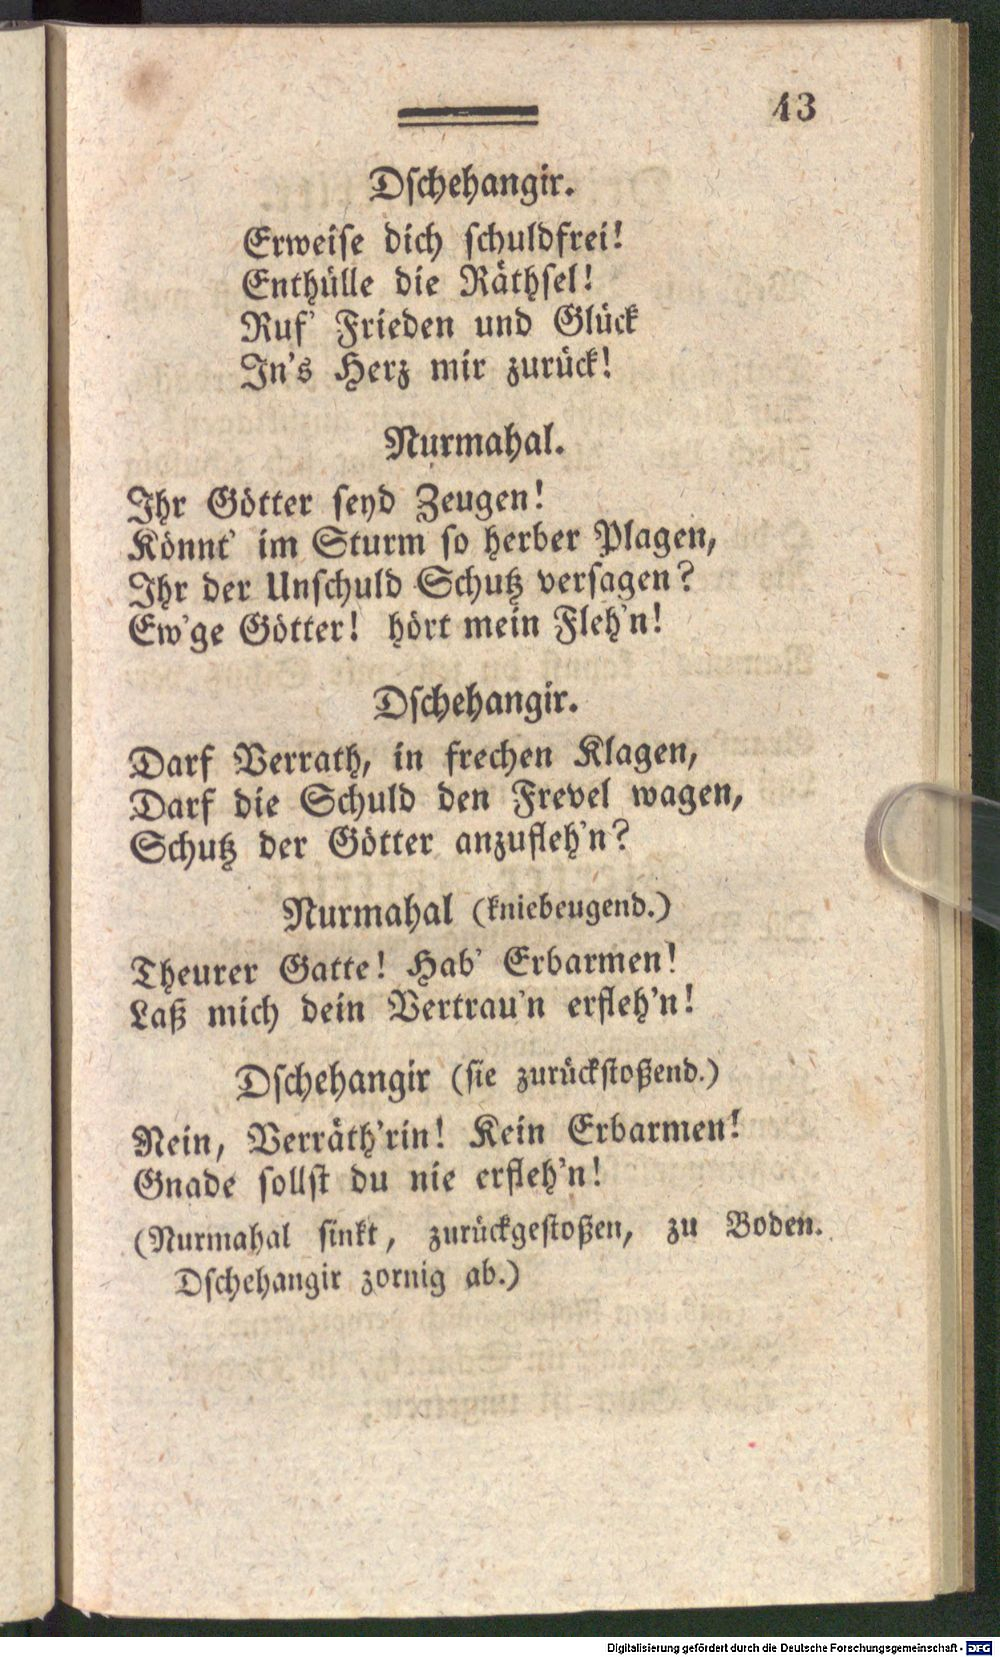 43
Dſchehangir.
Erweiſe dich ſchuldfrei!
Enthülle die Räthſel!
Ruf' Frieden und Glück
In's Herz mir zurück!
Nurmahal.
Ihr Götter ſeyd Zeugen!
Könnt' im Sturm ſo herber Plagen,
Ihr der Unſchuld Schutz verſagen?
Ew'ge Götter! hört mein Fleh'n!
Dſchehangir.
Darf Verrath, in frechen Klagen,
Darf die Schuld den Frevel wagen,
Schutz der Götter anzufleh'n?
Nurmahal (kniebeugend.)
Theurer Gatte! Hab' Erbarmen!
Laß mich dein Vertrau'n erfleh'n!
Dſchehangir (ſie zurückſtoßend.)
Nein, Verräth'rin! Kein Erbarmen!
Gnade ſollſt du nie erfleh'n!
(Nurmahal ſinkt, zurückgeſtoßen, zu Boden.
Dſchehangir zornig ab.)
Digitalisierung gefördert durch die Deutsche Forschungsgemeinschaft - DFG